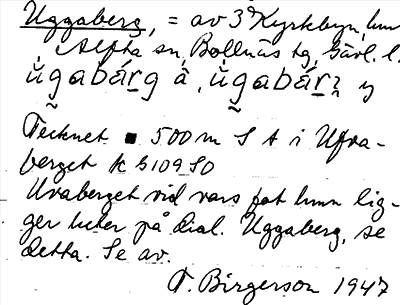 Uggaberg, = av 3 Kyrkbyn, hmn
Alfta sn, Bollnäs tg, Gävl. l.
ŭgabárg å, ŭgabár y
Tecknet ■ 500 m S t i Ufva-
berget k G109 SO
Uvaberget vid vars fot hmn lig-
ger heter på dial. Uggaberg, se
detta. Se av.
T. Birgerson 1947